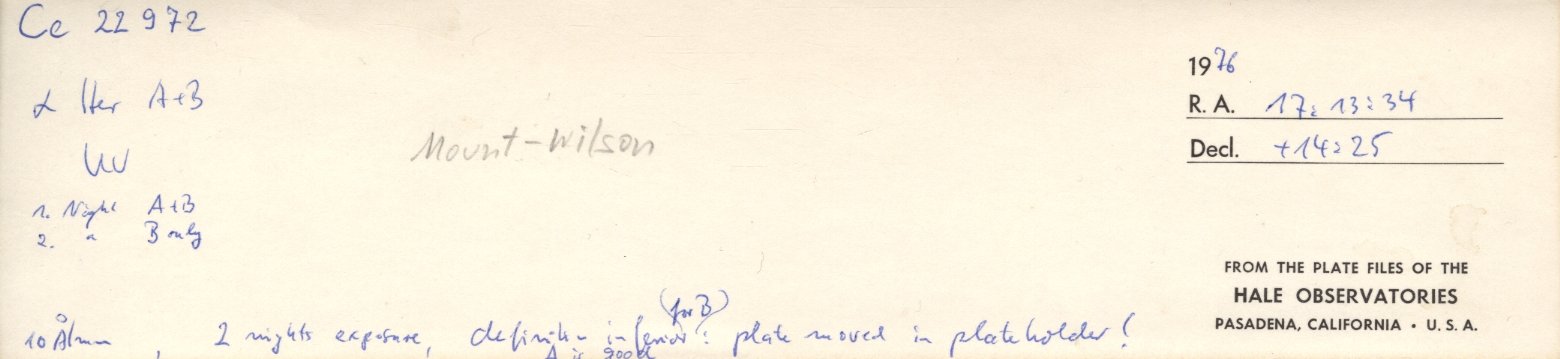 Ce 22972
α Her A+B
UV
1. Night A+B
2. " B only
Mount-Wilson
1976
R. A. 17:13:34
Decl. +14:25
FROM THE PLATE FILES OF THE
HALE OBSERVATORIES
PASADENA, CALIFORNIA • U. S. A.
(for B)
10 Å/mm, 2 nights exposure, definition inferior: plate moved in plateholder!
A is good